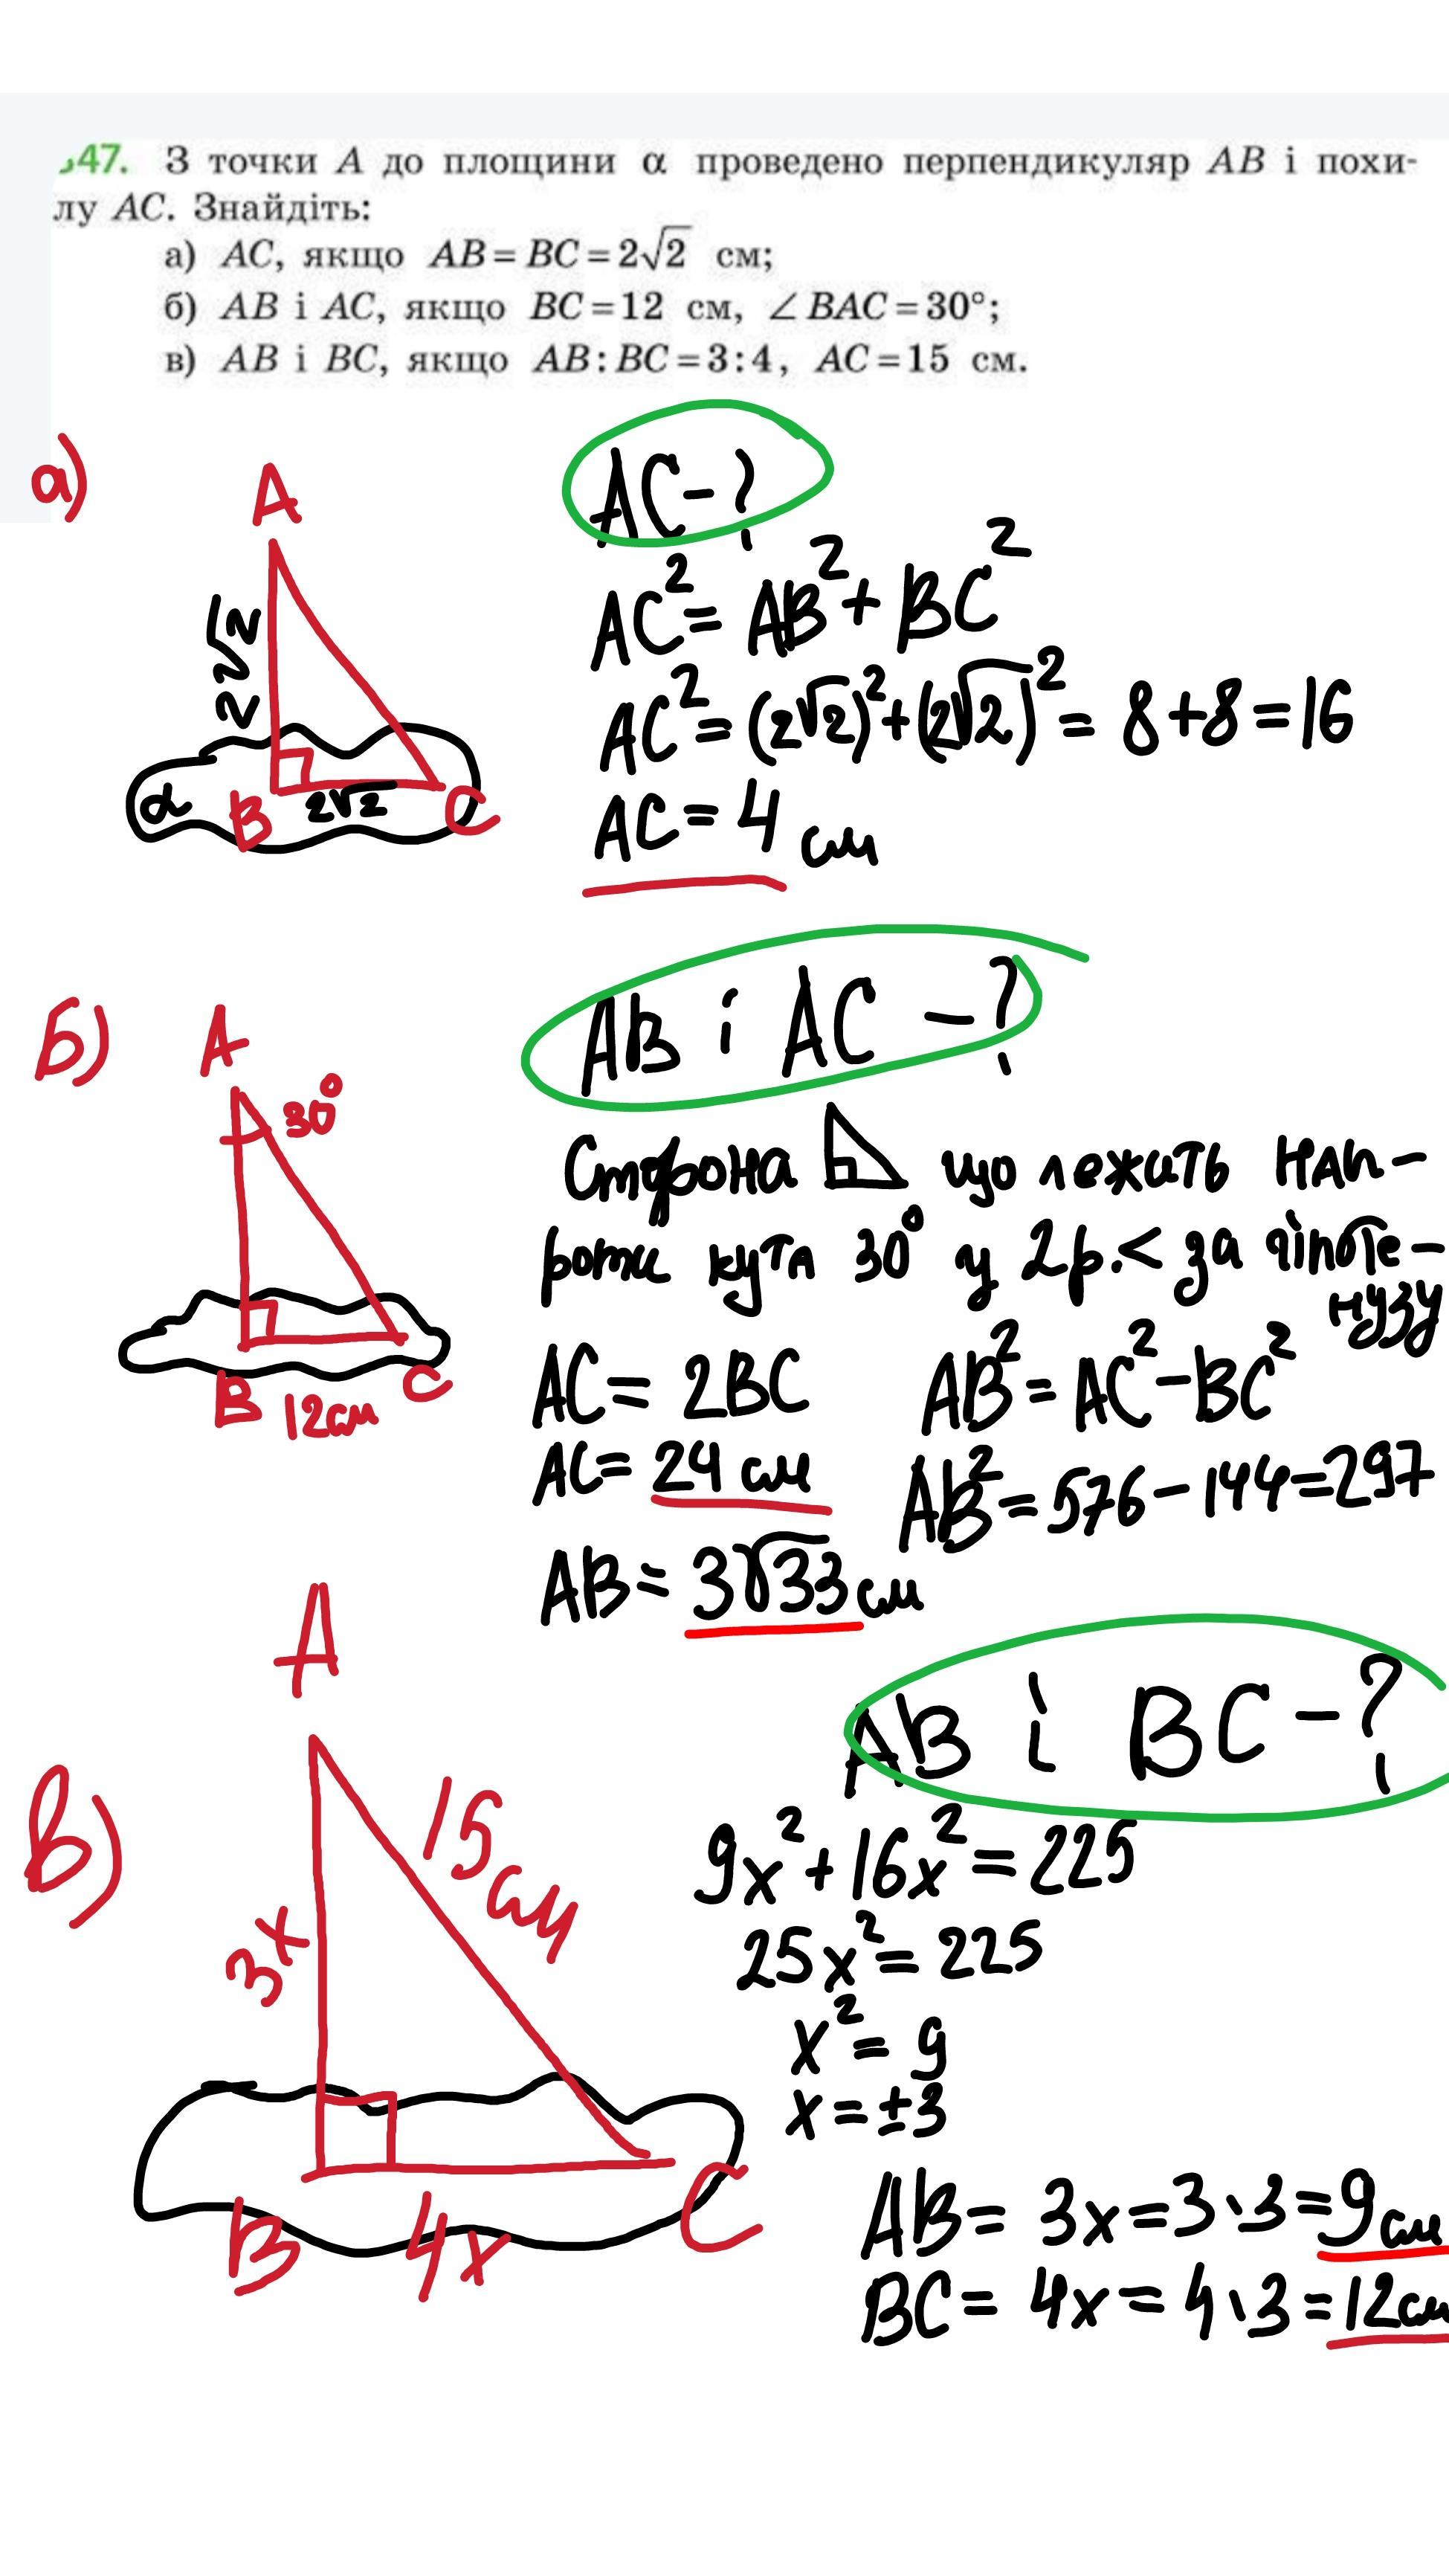 47. З точки A до площини α проведено перпендикуляр AB і похи-
лу AC. Знайдіть:
а) AC, якщо AB = BC = 2√2 см;
б) AB і AC, якщо BC = 12 см, ∠BAC = 30°;
в) AB і BC, якщо AB : BC = 3 : 4, AC = 15 см.
а)
A
2√2
α
B
2√2
C
AC - ?
AC² = AB² + BC²
AC² = (2√2)² + (2√2)² = 8 + 8 = 16
AC = 4 см
б)
A
30°
B
12см
C
AB і AC - ?
Сторона що лежить нап-
роти кута 30° у 2р. < за гіпоте-
нузу
AC = 2BC
AB² = AC² - BC²
AC = 24 см
AB² = 576 - 144 = 297
AB = 3√33 см
в)
A
15 см
3x
B
4x
C
AB і BC - ?
9x² + 16x² = 225
25x² = 225
x² = 9
x = ±3
AB = 3x = 3·3 = 9 см
BC = 4x = 4·3 = 12 см